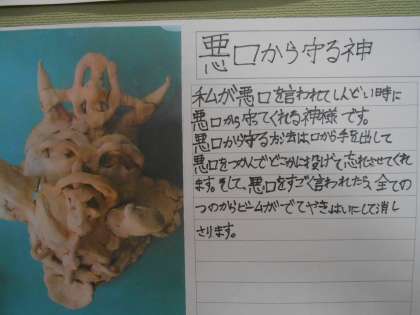 悪口から守る神
私が悪口を言われてしんどい時に
悪口から守ってくれる神様です。
悪口から守る方法は、口から手を出して
悪口をつかんでどこかに投げて忘れさせてくれ
ます。そして、悪口をすごく言われたら、全ての
つのからビームがでてやきはいにして消し
さります。